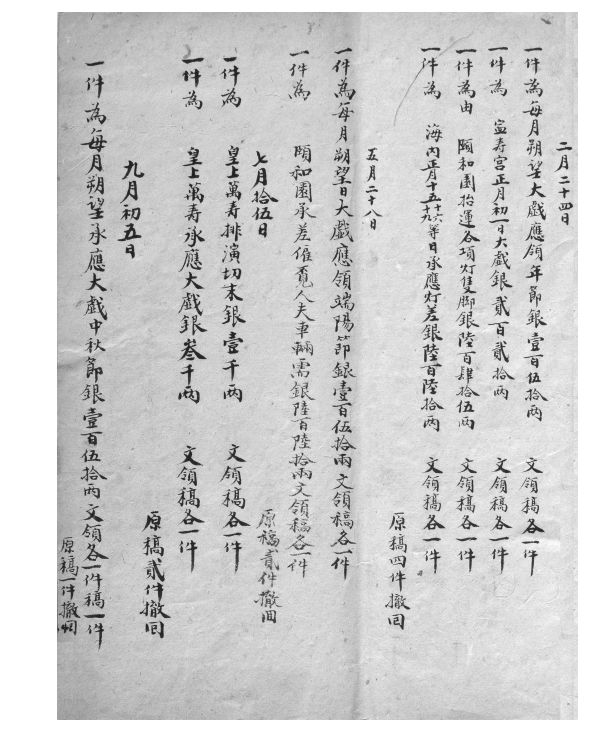 二月二十四日
一件為每月朔望大戲應領年節銀壹百伍拾両 文領稿各一件
一件為 寍寿宮正月初一日大戲銀貳百貳拾両 文領稿各一件
一件為由 頤和園抬運各項灯隻脚銀陸百肆拾伍両 文領稿各一件
一件為 海內正月十五十六十九等日承應灯差銀陸百陸拾両 文領稿各一件
原稿四件撤回
五月二十八日
一件為每月朔望日大戲應領端陽節銀壹百伍拾兩文領稿各一件
一件為 頤和園承差僱覓人夫車輛需銀陸百陸拾兩文領稿各一件
原稿貳件撤回
七月拾伍日
一件為 皇上萬壽排演切末銀壹千両 文領稿各一件
一件為 皇上萬寿承應大戲銀叁千両 文領稿各一件
原稿貳件撤回
九月初五日
一件為每月朔望承應大戲中秋節銀壹百伍拾両文領各一件稿一件
原稿一件撤回